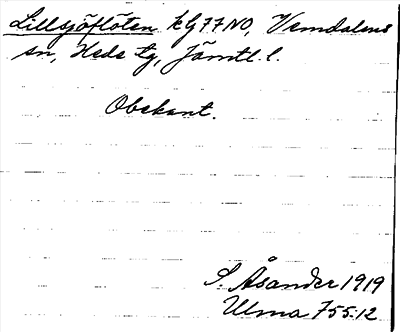 Lillsjöflöten kg 77 NO, Vemdalens
sn, Hede tg, Jämtl. l.
Obekant.
S. Åsander 1919
Ulma 755:12